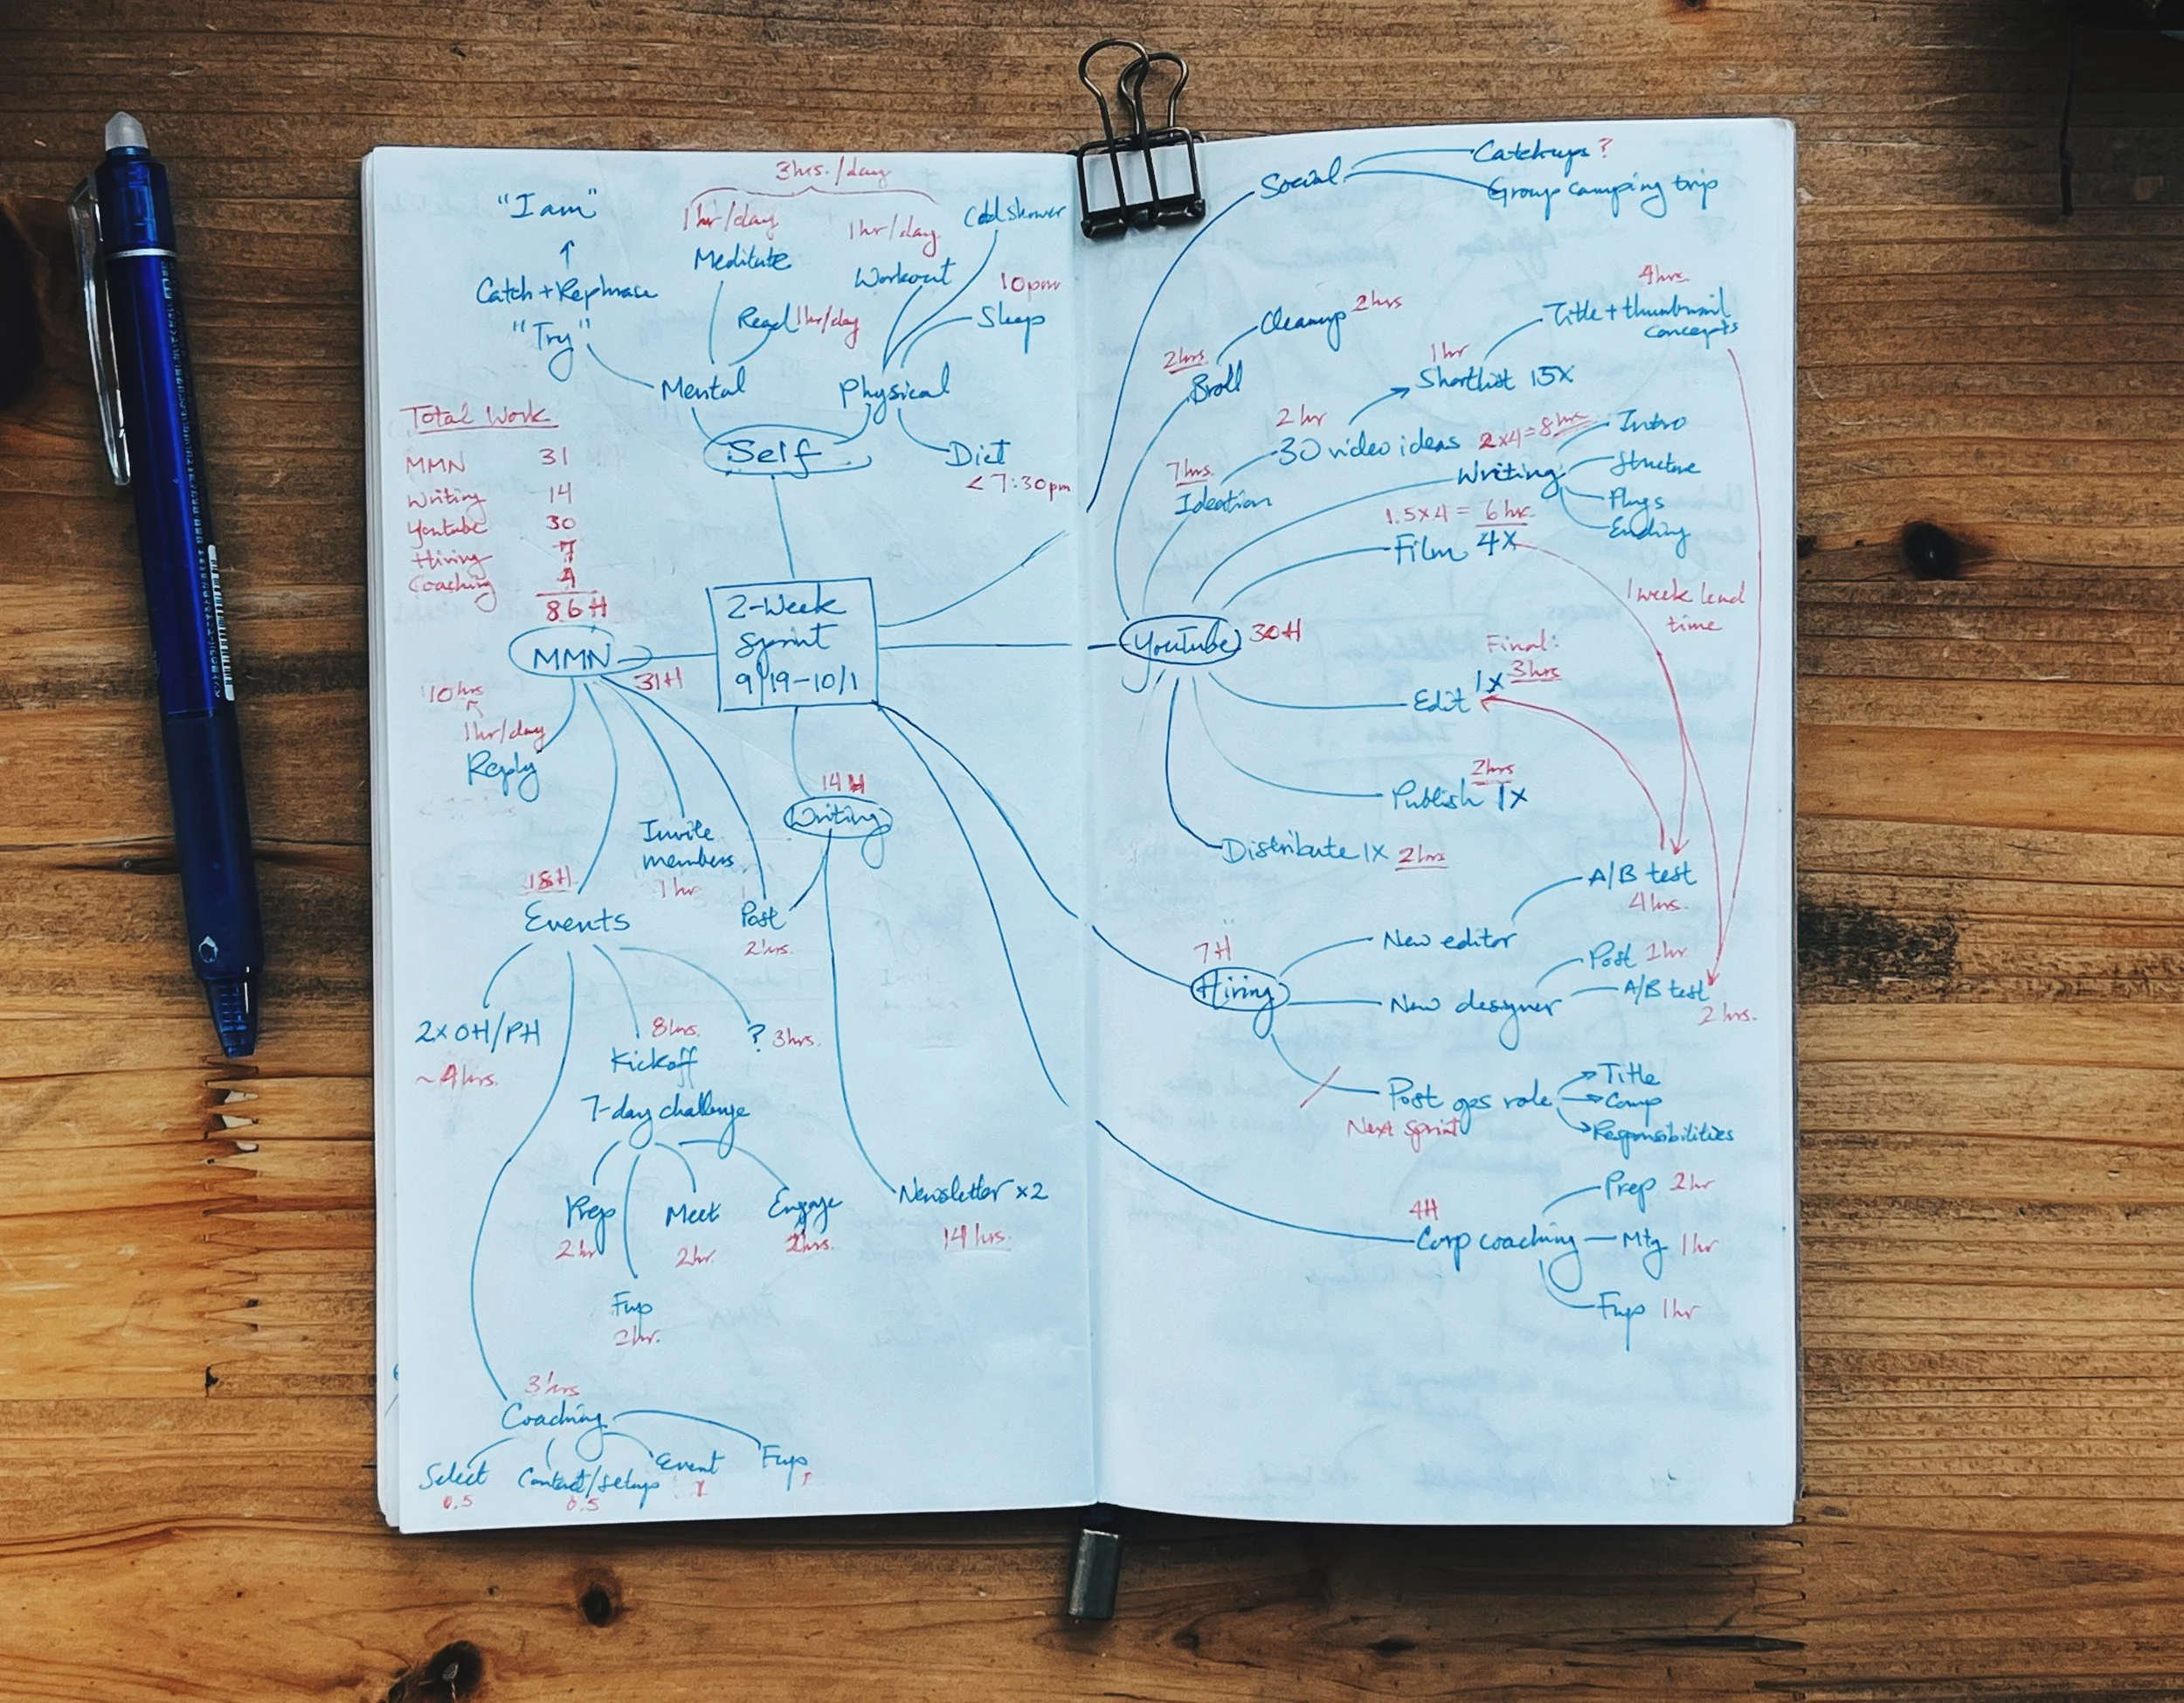 3hrs./day
"I am"
1hr/day
1hr/day
Cold shower
↑
Meditate
Workout
10pm
Catch + Rephrase
Read 1hr/day
Sleep
"Try"
Mental
Physical
Self
Diet
< 7:30pm
Total Work
MMN 31
Writing 14
Youtube 30
Hiring 7
Coaching 4
86H
2-Week
Sprint
9/19-10/1
MMN
31H
10hrs
1hr/day
Reply
14H
Writing
Invite
members
1hr
18H
Events
Post
2hrs.
2x OH/PH
~4hrs.
8hrs.
Kickoff
7-day challenge
? 3hrs.
Prep
2hr
Meet
2hr.
Engage
2hrs.
Fup
2hr.
Newsletter x2
14 hrs.
3hrs
Coaching
Select
0.5
Contact/setup
0.5
Event
1
Fup
Social
Catchups ?
Group camping trip
Cleanup 2hrs
4hrs.
Title + thumbnail
concepts
2hrs
Broll
1hr
Shortlist 15X
2hr
30 video ideas
2x4=8hrs
Intro
Writing
Structure
Plugs
Ending
7hrs.
Ideation
1.5x4 = 6hr.
Film 4X
1 week lead
time
YouTube 30H
Final:
1X 3hrs
Edit
2hrs
Publish 1X
Distribute 1X 2hrs
A/B test
4hrs.
7H
Hiring
New editor
Post 1hr.
New designer
A/B test
2hrs.
Post ops role
Title
Comp
Responsibilities
Next Sprint
4H
Corp coaching
Prep 2hr
Mtg 1hr
Fup 1hr